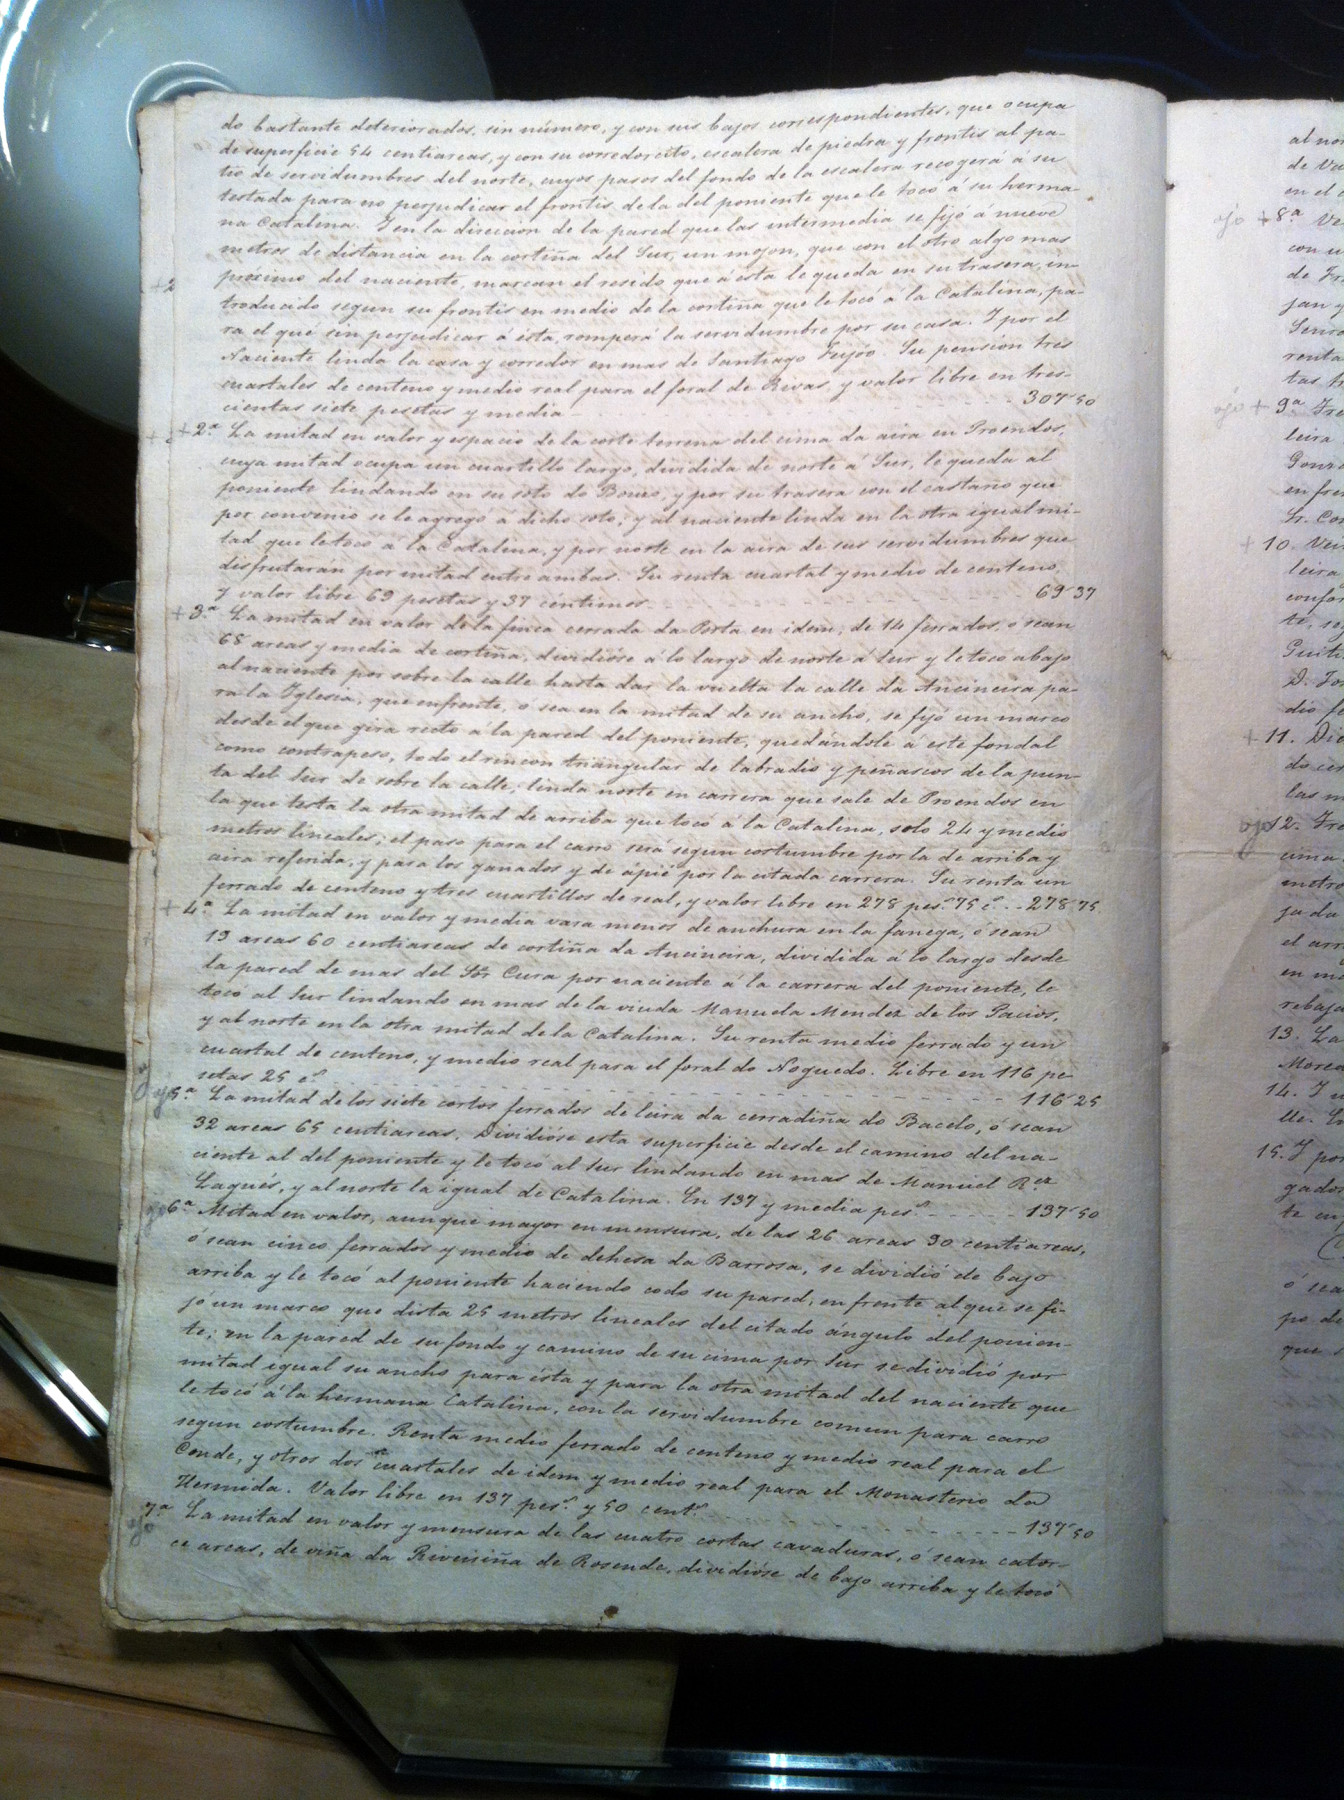 do bastante deteriorados, sin número, y con sus bajos correspondientes, que ocupa
de superficie 54 centiareas, y con su corredorcito, escalera de piedra y frontis al pa-
tio de servidumbres del norte, cuyos pasos del fondo de la escalera recogerá á su
testada para no perjudicar el frontis de la del poniente que le tocó á su herma-
na Catalina. I en la direccion de la pared que las intermedia se fijó á nueve
metros de distancia en la cortiña del Sur, un mojon, que con el otro algo mas
+2 próximo del naciente, marcan el resido que á ésta le queda en su trasera, in-
troducido segun su frontis en medio de la cortiña que le tocó á la Catalina, pa-
ra el que sin perjudicar á ésta, romperá la servidumbre por su casa. I por el
Naciente linda la casa y corredor en mas de Santiago Feijóo. Su pension tres
cuartales de centeno y medio real para el foral de Rivas, y valor libre en tres-
cientas siete pesetas y media 307´50
+ +2.ª La mitad en valor y espacio de la corte terrena del cima da aira en Proendos,
cuya mitad ocupa un cuartillo largo, dividida de norte á Sur, le queda al
poniente lindando en su soto do Bouzo, y por su trasera con el castaño que
por convenio se le agregó á dicho soto; y al naciente linda en la otra igual mi-
tad que le tocó á la Catalina, y por norte en la aira de sus servidumbres que
disfrutaran por mitad entre ambas. Su renta cuartal y medio de centeno,
y valor libre 69 pesetas y 37 céntimos 69´37
+3.ª La mitad en valor de la finca cerrada da Porta en idem, de 14 ferrados, o sean
68 areas y media de cortiña, dividióse á lo largo de norte á Sur y le toco abajo
al naciente por sobre la calle hasta dar la vuelta la calle da Ancineira pa-
ra la Iglesia, que enfrente, o sea en la mitad de su ancho, se fijó un marco
desde el que gira recto á la pared del poniente, quedándole á este fondal
como contrapeso, todo el rincon triangular de labradio y peñascos de la pun-
ta del Sur de sobre la calle; linda norte en carrera que sale de Proendos en
la que testa la otra mitad de arriba que tocó á la Catalina, solo 24 y medio
metros lineales; el paso para el carro será segun costumbre por la de arriba y
aira referida, y para los ganados y de ápié por la citada carrera. Su renta un
ferrado de centeno y tres cuartillos de real, y valor libre en 278 pes.s 75 c.s 278´75
+ 4.ª La mitad en valor y media vara menos de anchura en la fanega, o sean
19 areas 60 centiareas de cortiña da Ancineira, dividida á lo largo desde
la pared de mas del Sör Cura por naciente á la carrera del poniente, le
tocó al Sur lindando en mas de la viuda Manuela Mendez de los Pacios,
y al norte en la otra mitad de la Catalina. Su renta medio ferrado y un
cuartal de centeno, y medio real para el foral do Noguedo. Libre en 116 pe-
setas 25 c.s 116´25
ojo 5.ª La mitad de los siete cortos ferrados de leira da cerradiña do Bacelo, ó sean
32 areas 65 centiareas. Dividióse esta superficie desde el camino del na-
ciente al del poniente y le tocó al Sur lindando en mas de Manuel R.ez
Laqués, y al norte la igual de Catalina. En 137 y media pes.s 137´50
ojo 6.ª Mitad en valor, aunque mayor en mensura, de las 26 areas 90 centiareas,
ó sean cinco ferrados y medio de dehesa da Barrosa, se dividió de bajo
arriba y le tocó al poniente haciendo codo su pared, en frente al que se fi-
jó un marco que dista 25 metros lineales del citado ángulo del ponien-
te; en la pared de su fondo y camino de su cima por Sur se dividió por
mitad igual su ancho para ésta y para la otra mitad del naciente que
le tocó á la hermana Catalina, con la servidumbre comun para carro
segun costumbre. Renta medio ferrado de centeno y medio real para el
Conde, y otros dos cuartales de idem y medio real para el Monasterio da
Hermida. Valor libre en 137 pes.s y 50 cent.s 137´50
ojo 7.ª La mitad en valor y mensura de las cuatro cortas cavaduras, ó sean cator-
ce areas, de viña da Riveiriña de Rosende, dividióse de bajo arriba y le tocó
al nor
en el
ojo +8.ª
con u
jan y
renta
ojo + 9.ª
leira
en fre
+ 10.
leira
confor
dio
+ 11.
do cer
ojo 12.
cima
metro
el arr
rebaja
13. La
14. I u
15. I por
te en
ó sea
po de
que